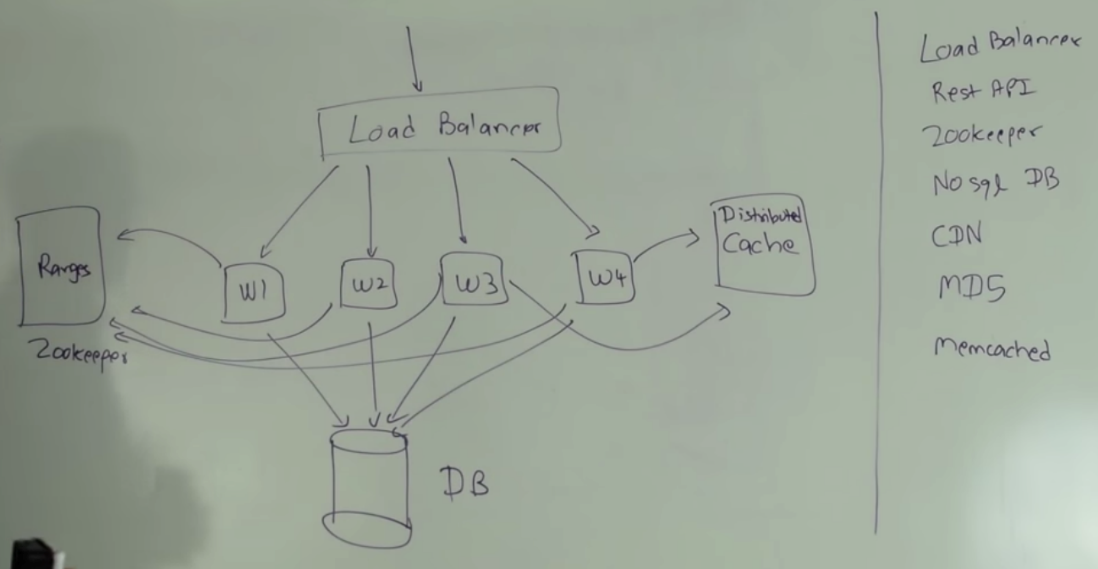 Load Balancer
Ranges
Zookeeper
W1
W2
W3
W4
Distributed
Cache
DB
Load Balancer
Rest API
Zookeeper
No sql DB
CDN
MD5
Memcached